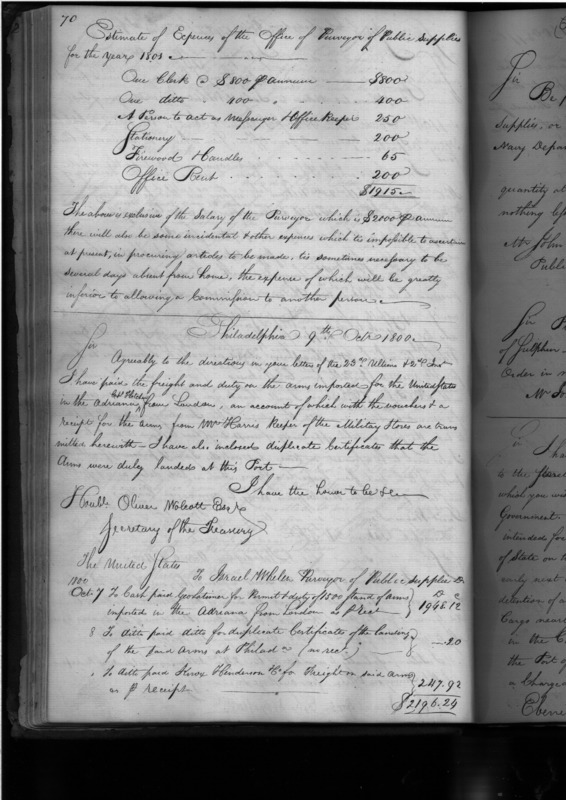 70
Estimate of Expences of the Office of Purveyor of Public Supplies
for the Year 1801
One Clerk @ $800 P annum $800
One ditto 400 " 400
A Person to act as Messenger & Office Keeper 250
Stationery 200
Firewood & Candles 65
Office Rent 200
$1915
The above is exclusive of the Salary of the Purveyor which is $2000 P annum
there will also be some incidental & other expences which tis impossible to ascertain
at present, in procuring articles to be made, tis sometimes necessary to be
several days absent from home, the expence of which will be greatly
inferior to allowing a Commission to another person
Philadelphia 9th Octr 1800
Sir
Agreeably to the directions in your letters of the 23rd Ultimo & 2nd Inst
I have paid the freight and duty on the arms imported for the United States
in the Adriana from London, an account of which with the vouchers & a
receipt for the arms from Mr Harris Keeper of the Military Stores are trans
mitted herewith - I have also inclosed duplicate Certificates that the
Arms were duly landed at this Port
I have the honor to be &c
Honble Oliver Wolcott Esqr
Secretary of the Treasury
The United States
To Israel Whelen Purveyor of Public Supplies Dr
D C
Oct. 7 To Cash paid for Permit & duty of 1500 stand of arms
imported in the Adriana from London as P rect 1948.12
8 To ditto paid ditto for duplicate Certificate of the landing
of the said Arms at Philada (no rect) .20
" To ditto paid Knox Henderson & Co for Freight on said arms
as P receipt 247.92
$2196.24
Sir
Supplies, or
Navy Depar
quantity a
nothing le
Mr John
Publi
Sir
of Sulphur
Order in
I ha
to the
which you wi
Government
intended fo
of State on t
early next
detention of a
Cargo near
in the C
the Port of
a Charge
Ebene